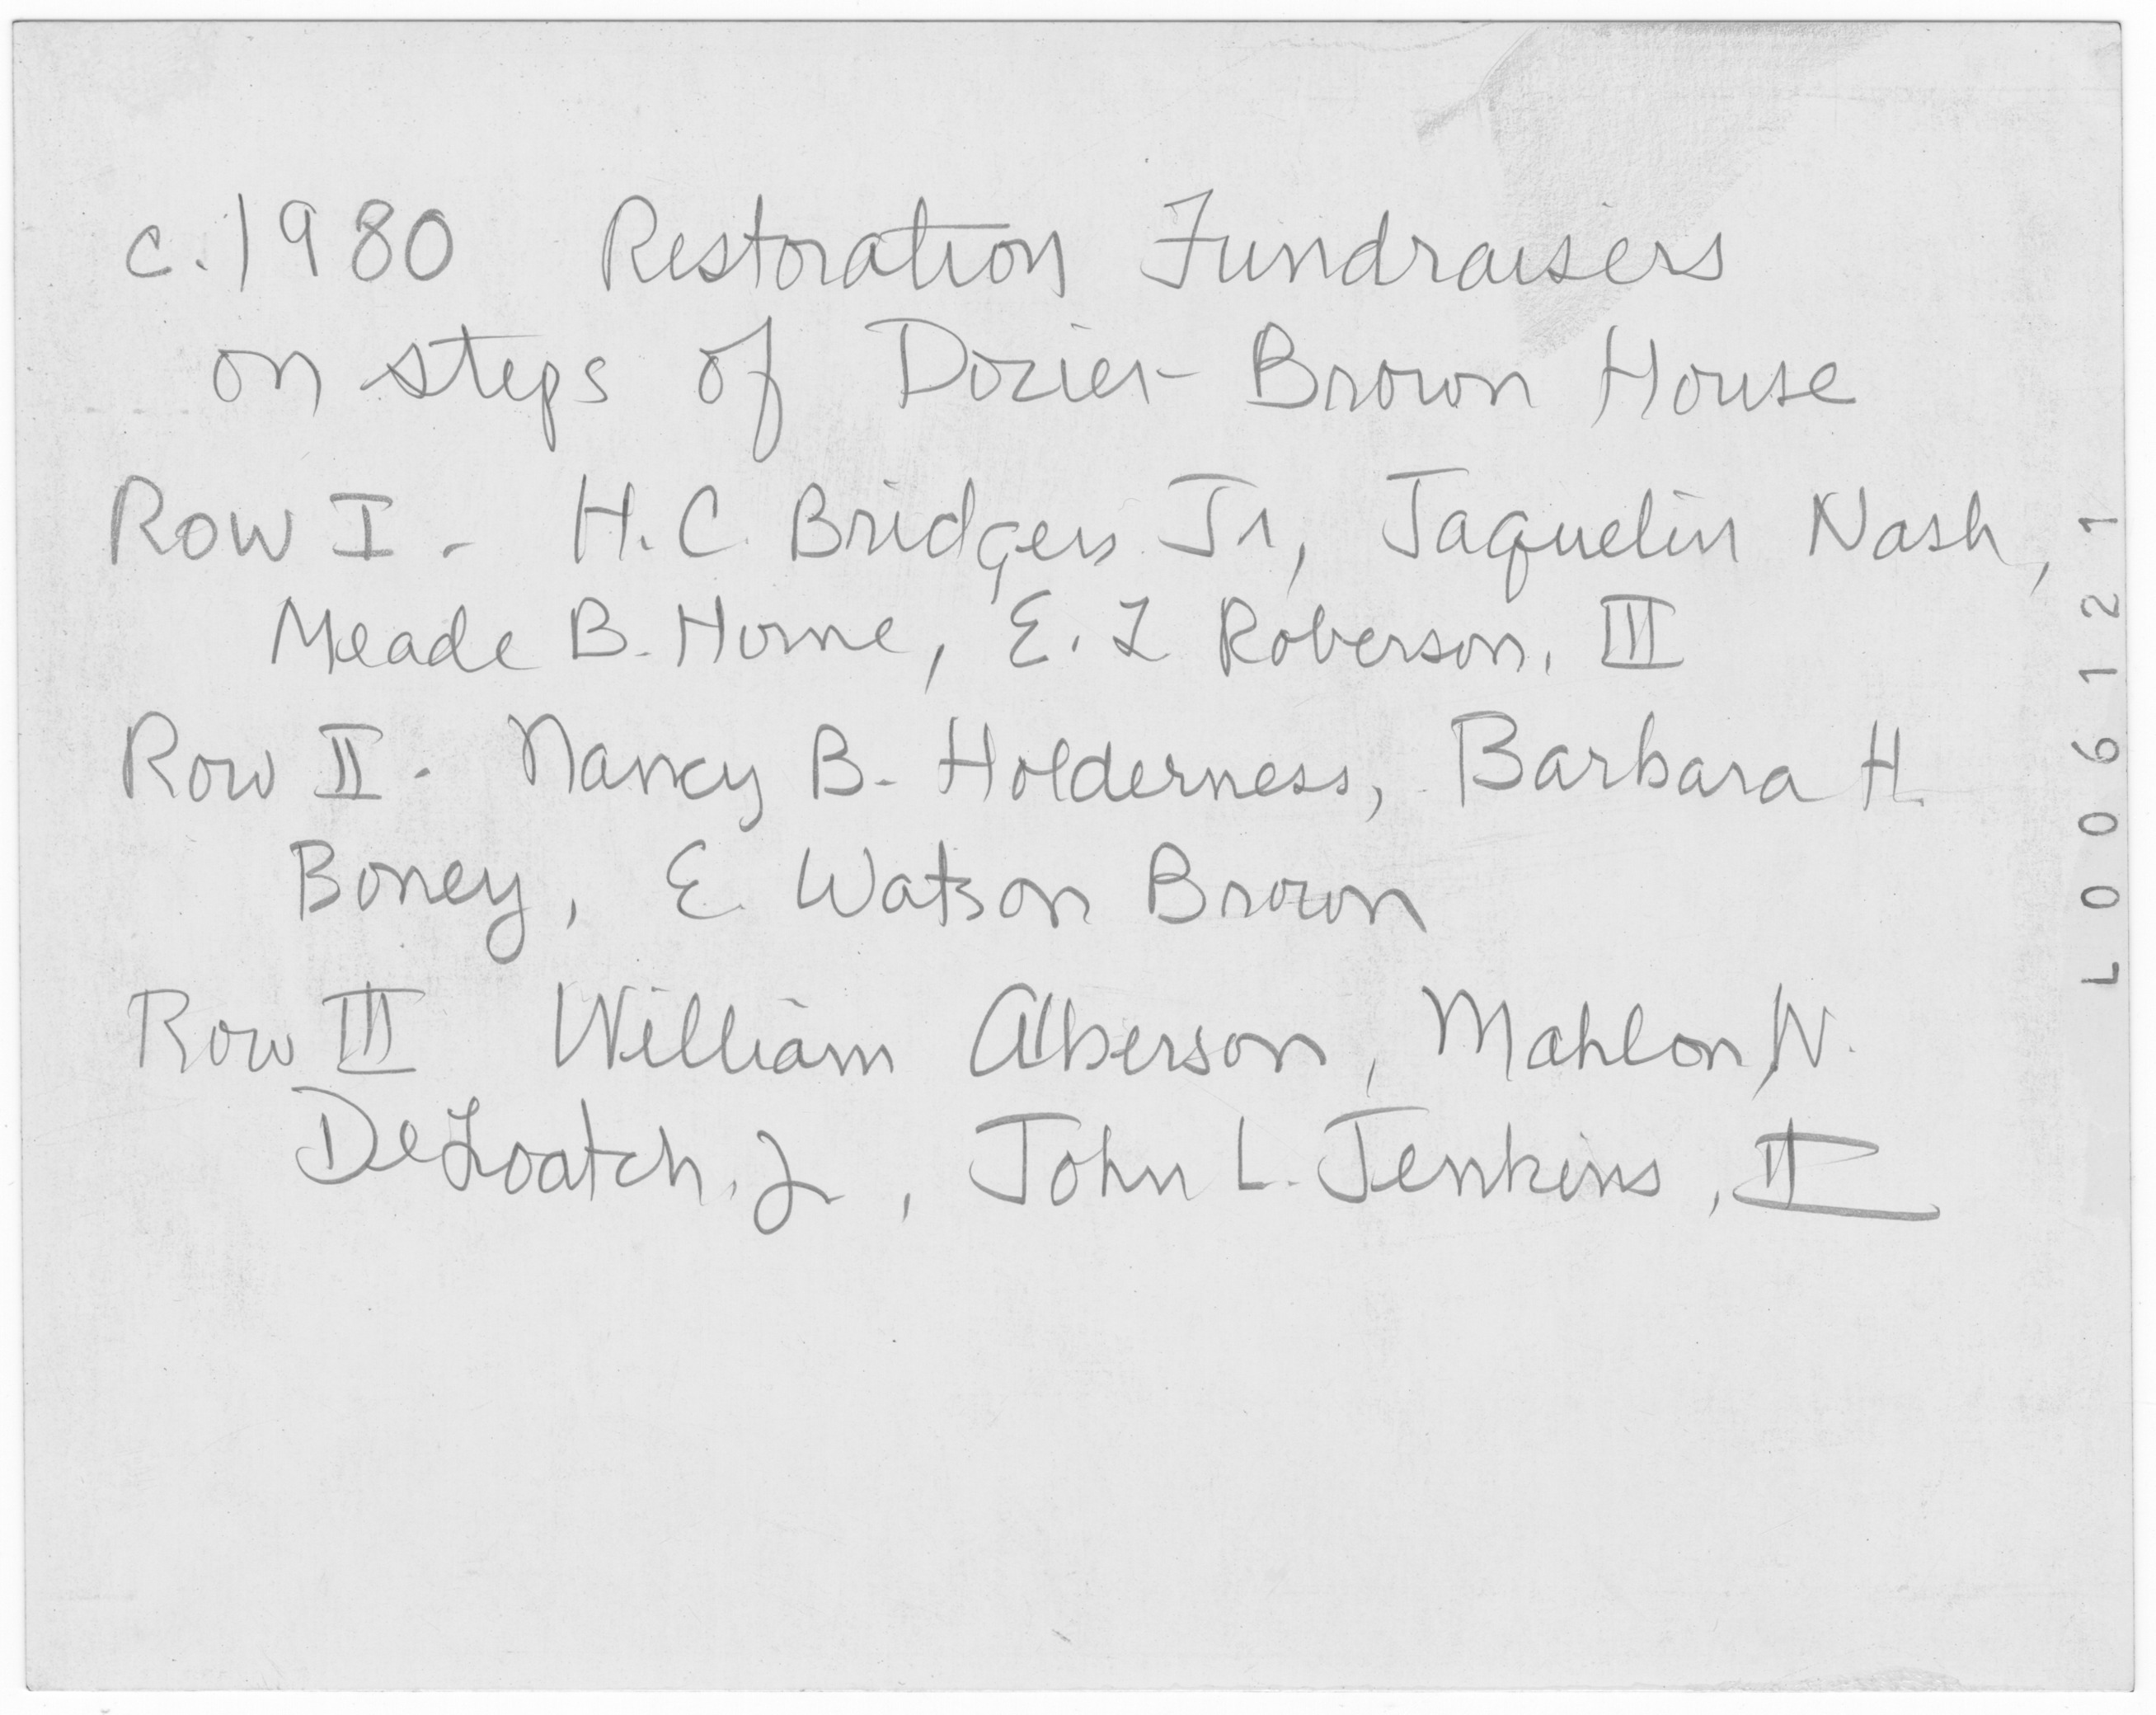 c. 1980 Restoration Fundraisers
on steps of Dozier-Brown House
Row I - H. C. Bridgers Jr, Jaquelin Nash,
Meade B. Horne, E. L Roberson, III
Row II - Nancy B. Holderness, Barbara H.
Boney, E. Watson Brown
Row III William Alberson, Mahlon W.
DeLoatch, Jr, John L. Jenkins, II
L006121